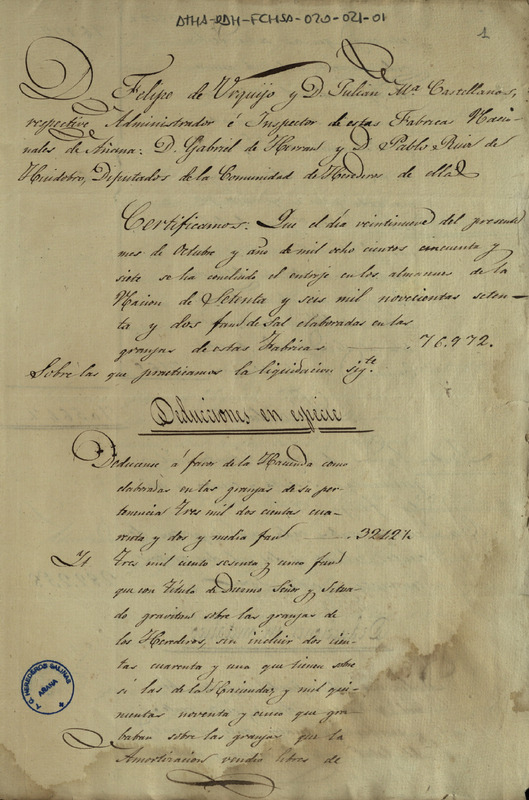 ATHA-DAH-FCHSA-020-021-01
1
D. Felipe de Urquijo y D. Julian Mª. Castellanos,
respective Administrador é Inspector de estas Fabricas Nacio-
nales de Añana: D. Gabriel de Herran y D. Pablo Ruiz de
Huidobro, Diputados de la Comunidad de Herederos de ellas
Certificamos: Que el dia veintinueve del presente
mes de Octubre y año de mil ocho cientos cincuenta y
siete se ha concluido el entroje en los almacenes de la
Nacion de Setenta y seis mil novecientas seten-
ta y dos fans de Sal elaboradas en las
granjas de estas Fabricas 76.972.
Sobre las que practicamos la liquidacion sigte.
Deducciones en especie
Deducense á favor de la Hacienda como
elaboradas en las granjas de su per-
tenencia tres mil dos cientas cua-
renta y dos y media fans 3242½
Yt tres mil ciento sesenta y cinco fans
que con titulo de Diezmo Señor y
gravitan sobre las granjas de
los Herederos, sin incluir dos cien-
tas cuarenta y una que tienen sobre
si las de la Hacienda, y mil qui-
nientas noventa y cinco que gra-
baban sobre las granjas que la
Amortizacion vendio libres de
HEREDEROS SALINAS
AÑANA